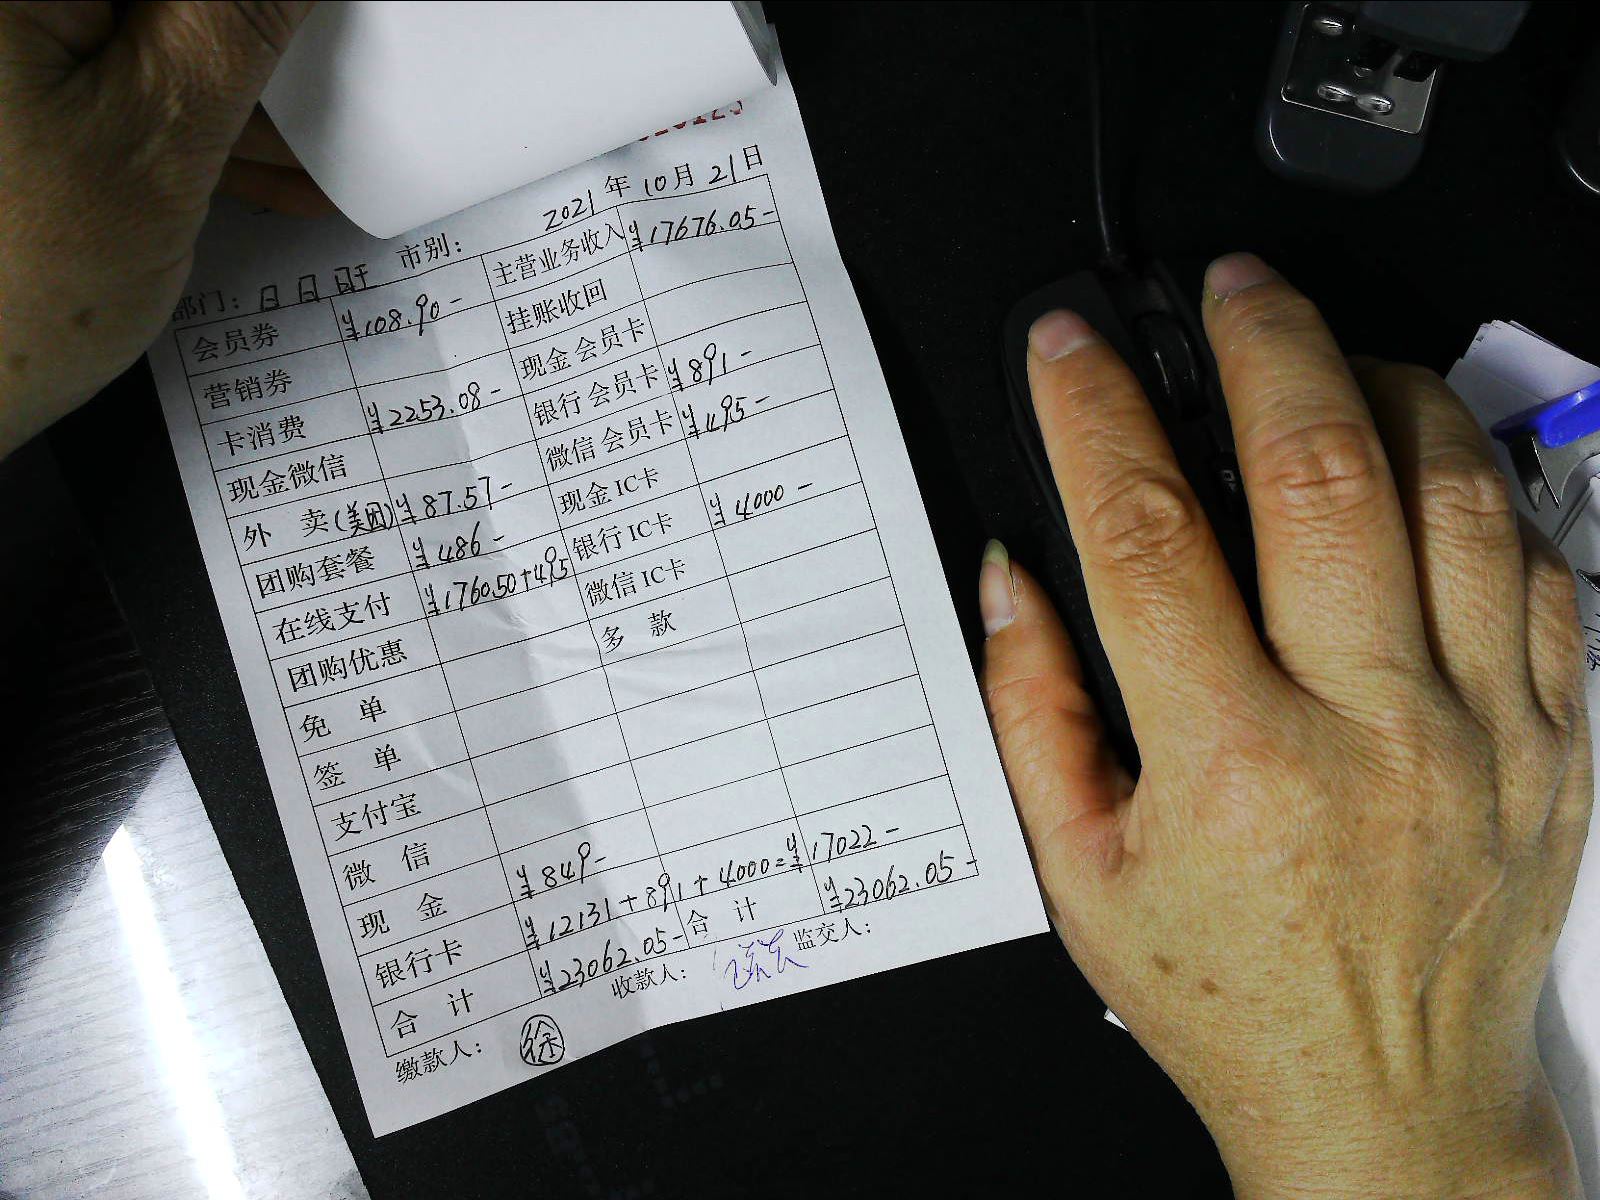 2021年10月21日
部门：日日旺 市别：
会员券 ¥108.90- 主营业务收入 ¥17676.05-
营销券 挂账收回
卡消费 ¥2253.08- 现金会员卡
现金微信 银行会员卡 ¥891-
外 卖(美团) ¥87.57- 微信会员卡 ¥495-
团购套餐 ¥486- 现金IC卡
在线支付 ¥1760.50+495 银行IC卡 ¥4000-
团购优惠 微信IC卡
免 单 多 款
签 单
支付宝
微 信
现 金 ¥849-
银行卡 ¥12131+891+4000=¥17022-
合 计 ¥23062.05- 合 计 ¥23062.05-
缴款人：徐 收款人： 监交人：